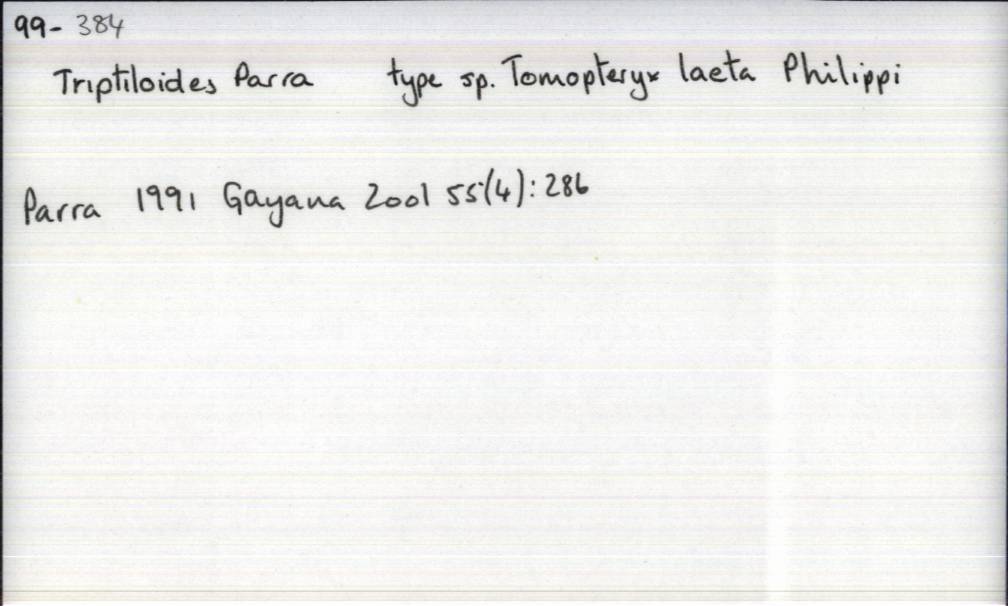 99- 384
Triptiloides Parra type sp. Tomopteryx laeta Philippi
Parra 1991 Gayana Zool 55(4): 286